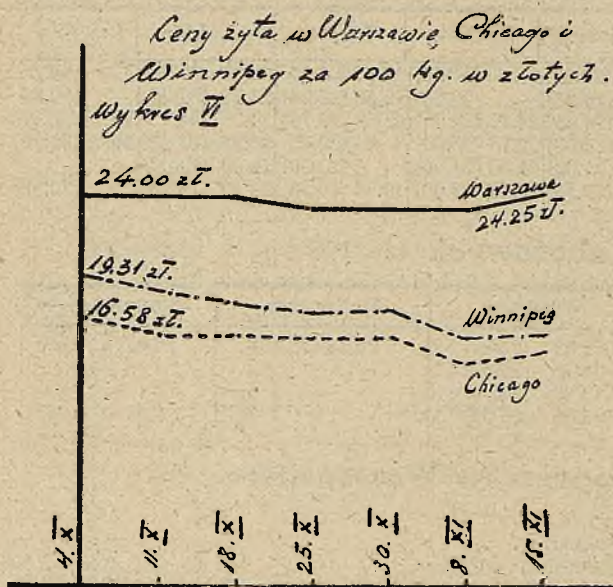 Ceny żyta w Warszawie, Chicago i
Winnipeg za 100 kg. w złotych.
Wykres VI
24.00 zł.
Warszawa
24.25 zł.
19.31 zł.
16.58 zł.
Winnipeg
Chicago
4. X
11. X
18. X
25. X
30. X
8. XI
15. XI